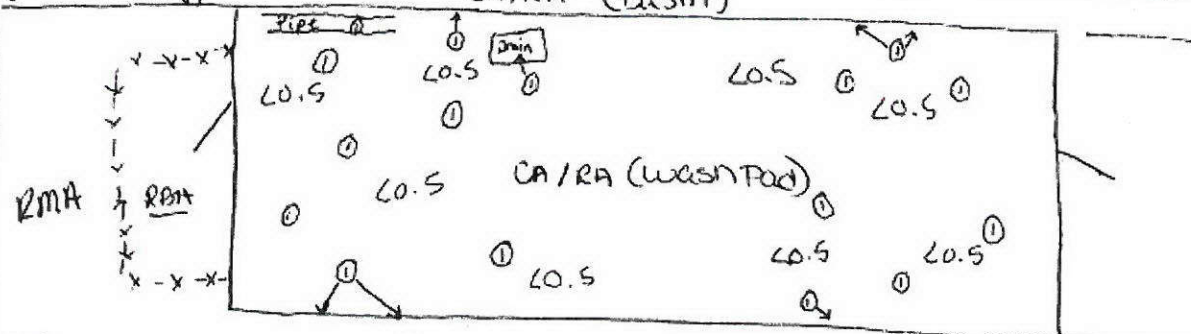 Pipe ①
① ① Drain ①
① <0.5 <0.5 ① <0.5 ① <0.5 ①
①
① <0.5 CA/RA (Wash Pad)
RMA RBA ① ① ①
① ① <0.5 <0.5 <0.5 ①
①